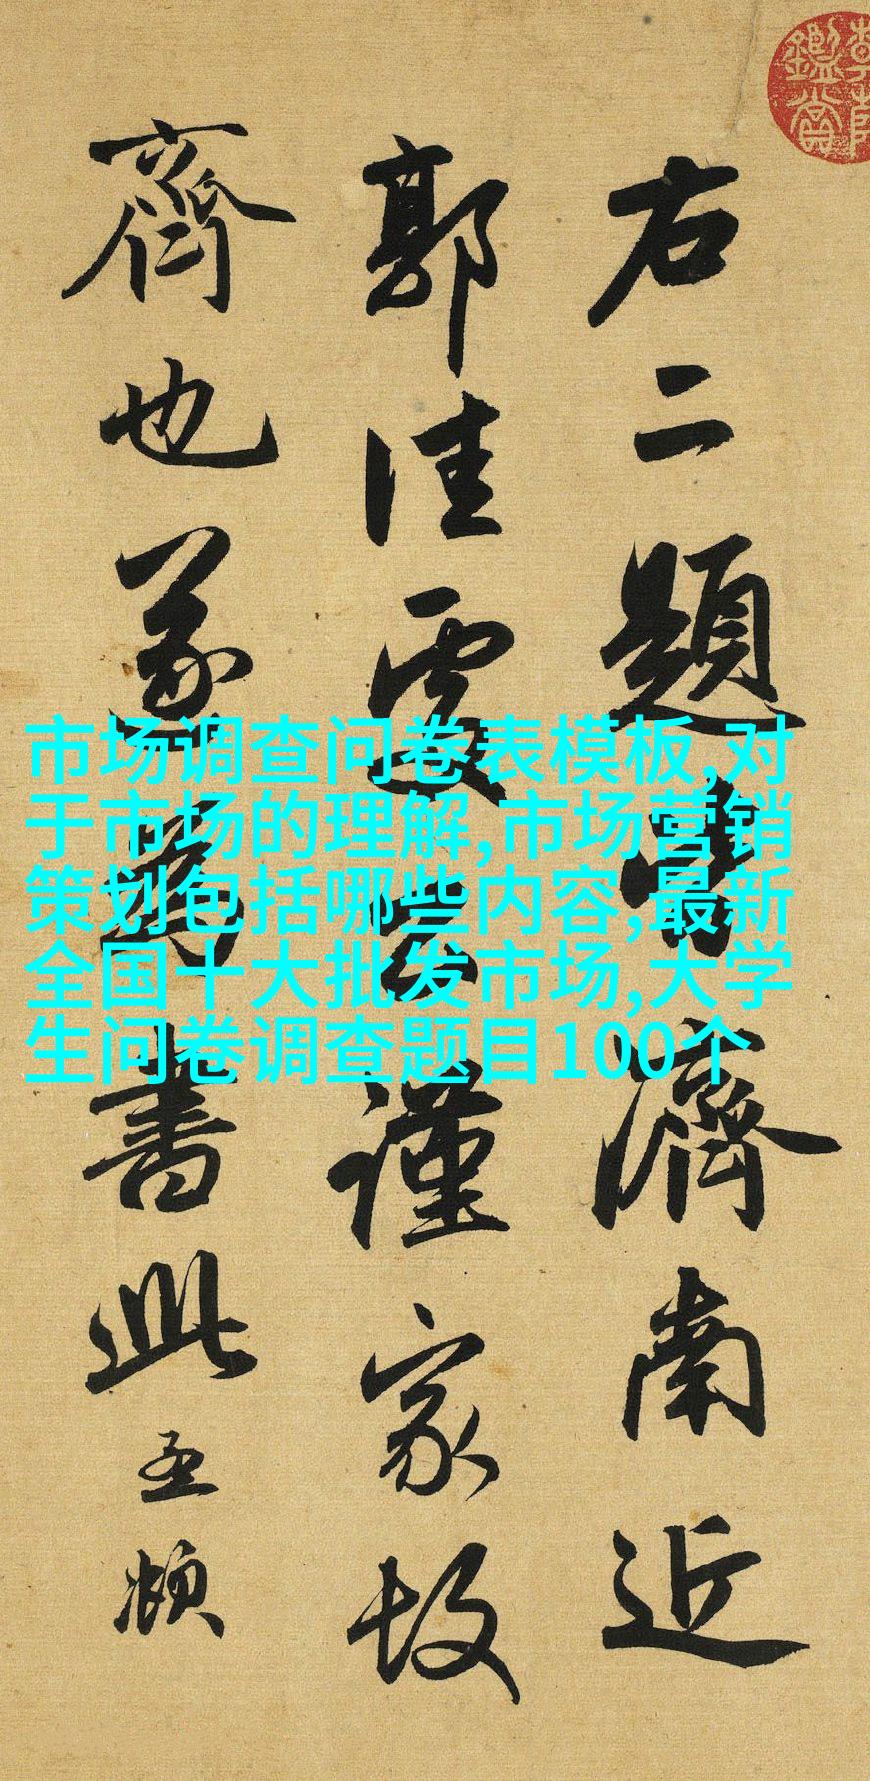 右二題皆濟南近
郭佳處公謹家故
齊也遂為書此孟頫
鑑賞
市场调查问卷表模板,对
于市场的理解,市场营销
策划包括哪些内容,最新
全国十大批发市场,大学
生问卷调查题目100个